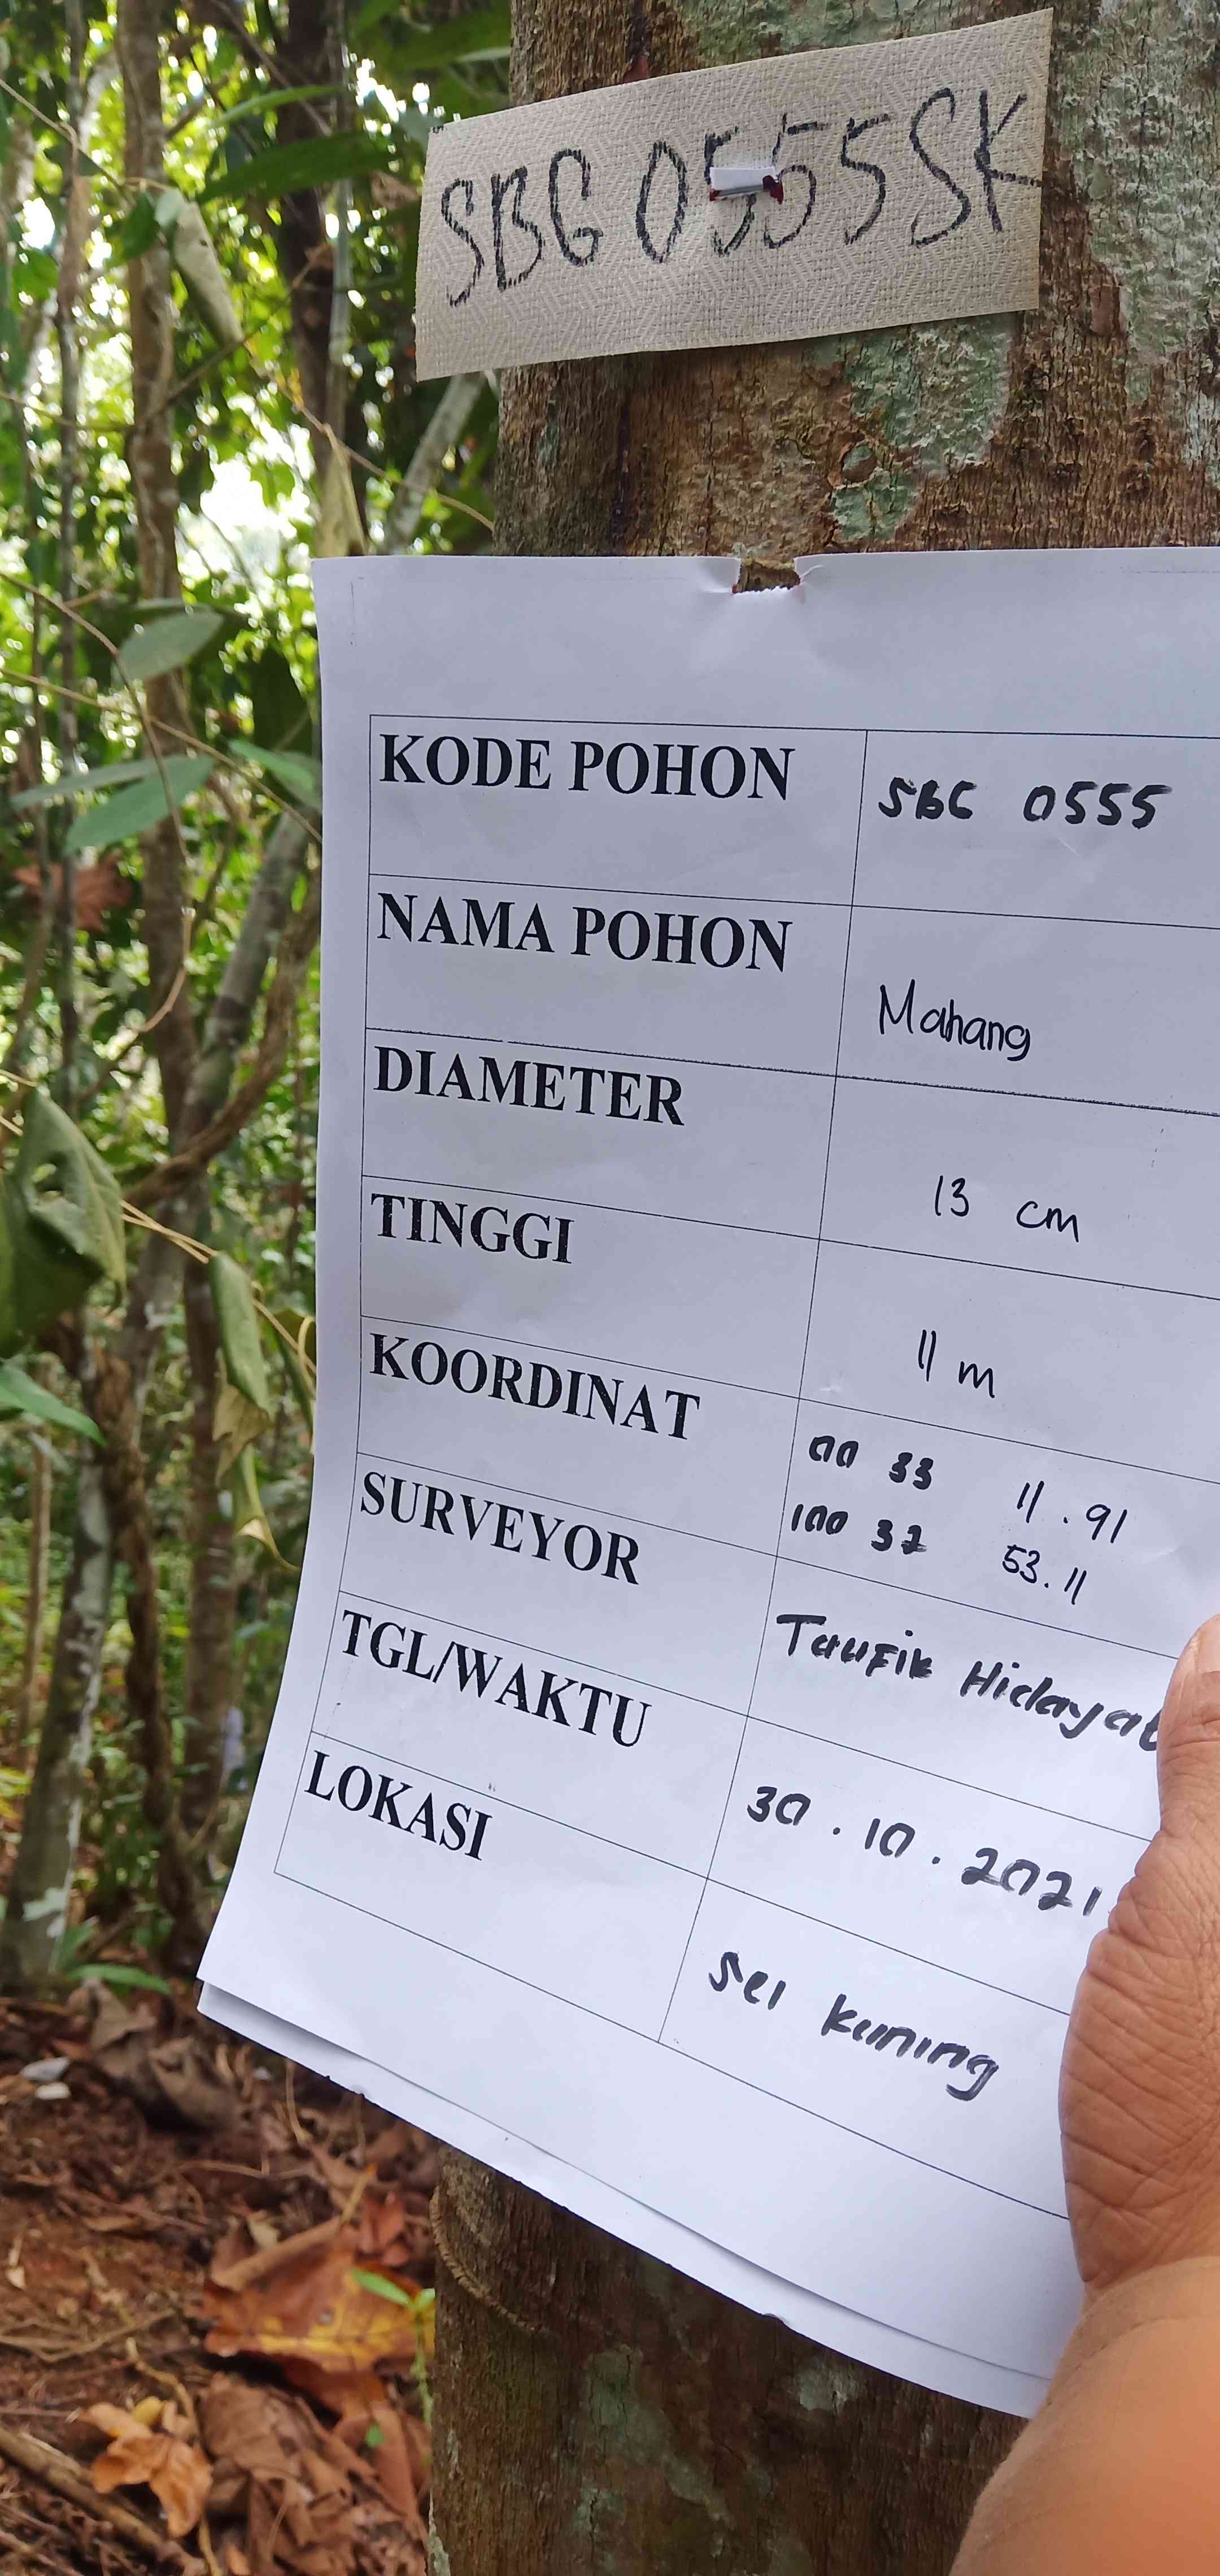 SBG 0555 SK
KODE POHON SBG 0555
NAMA POHON Mahang
DIAMETER 13 cm
TINGGI 11 m
KOORDINAT 00 33 11.91
100 32 53.11
SURVEYOR Taufik Hidayat
TGL/WAKTU 30.10.2021
LOKASI Sei Kuning